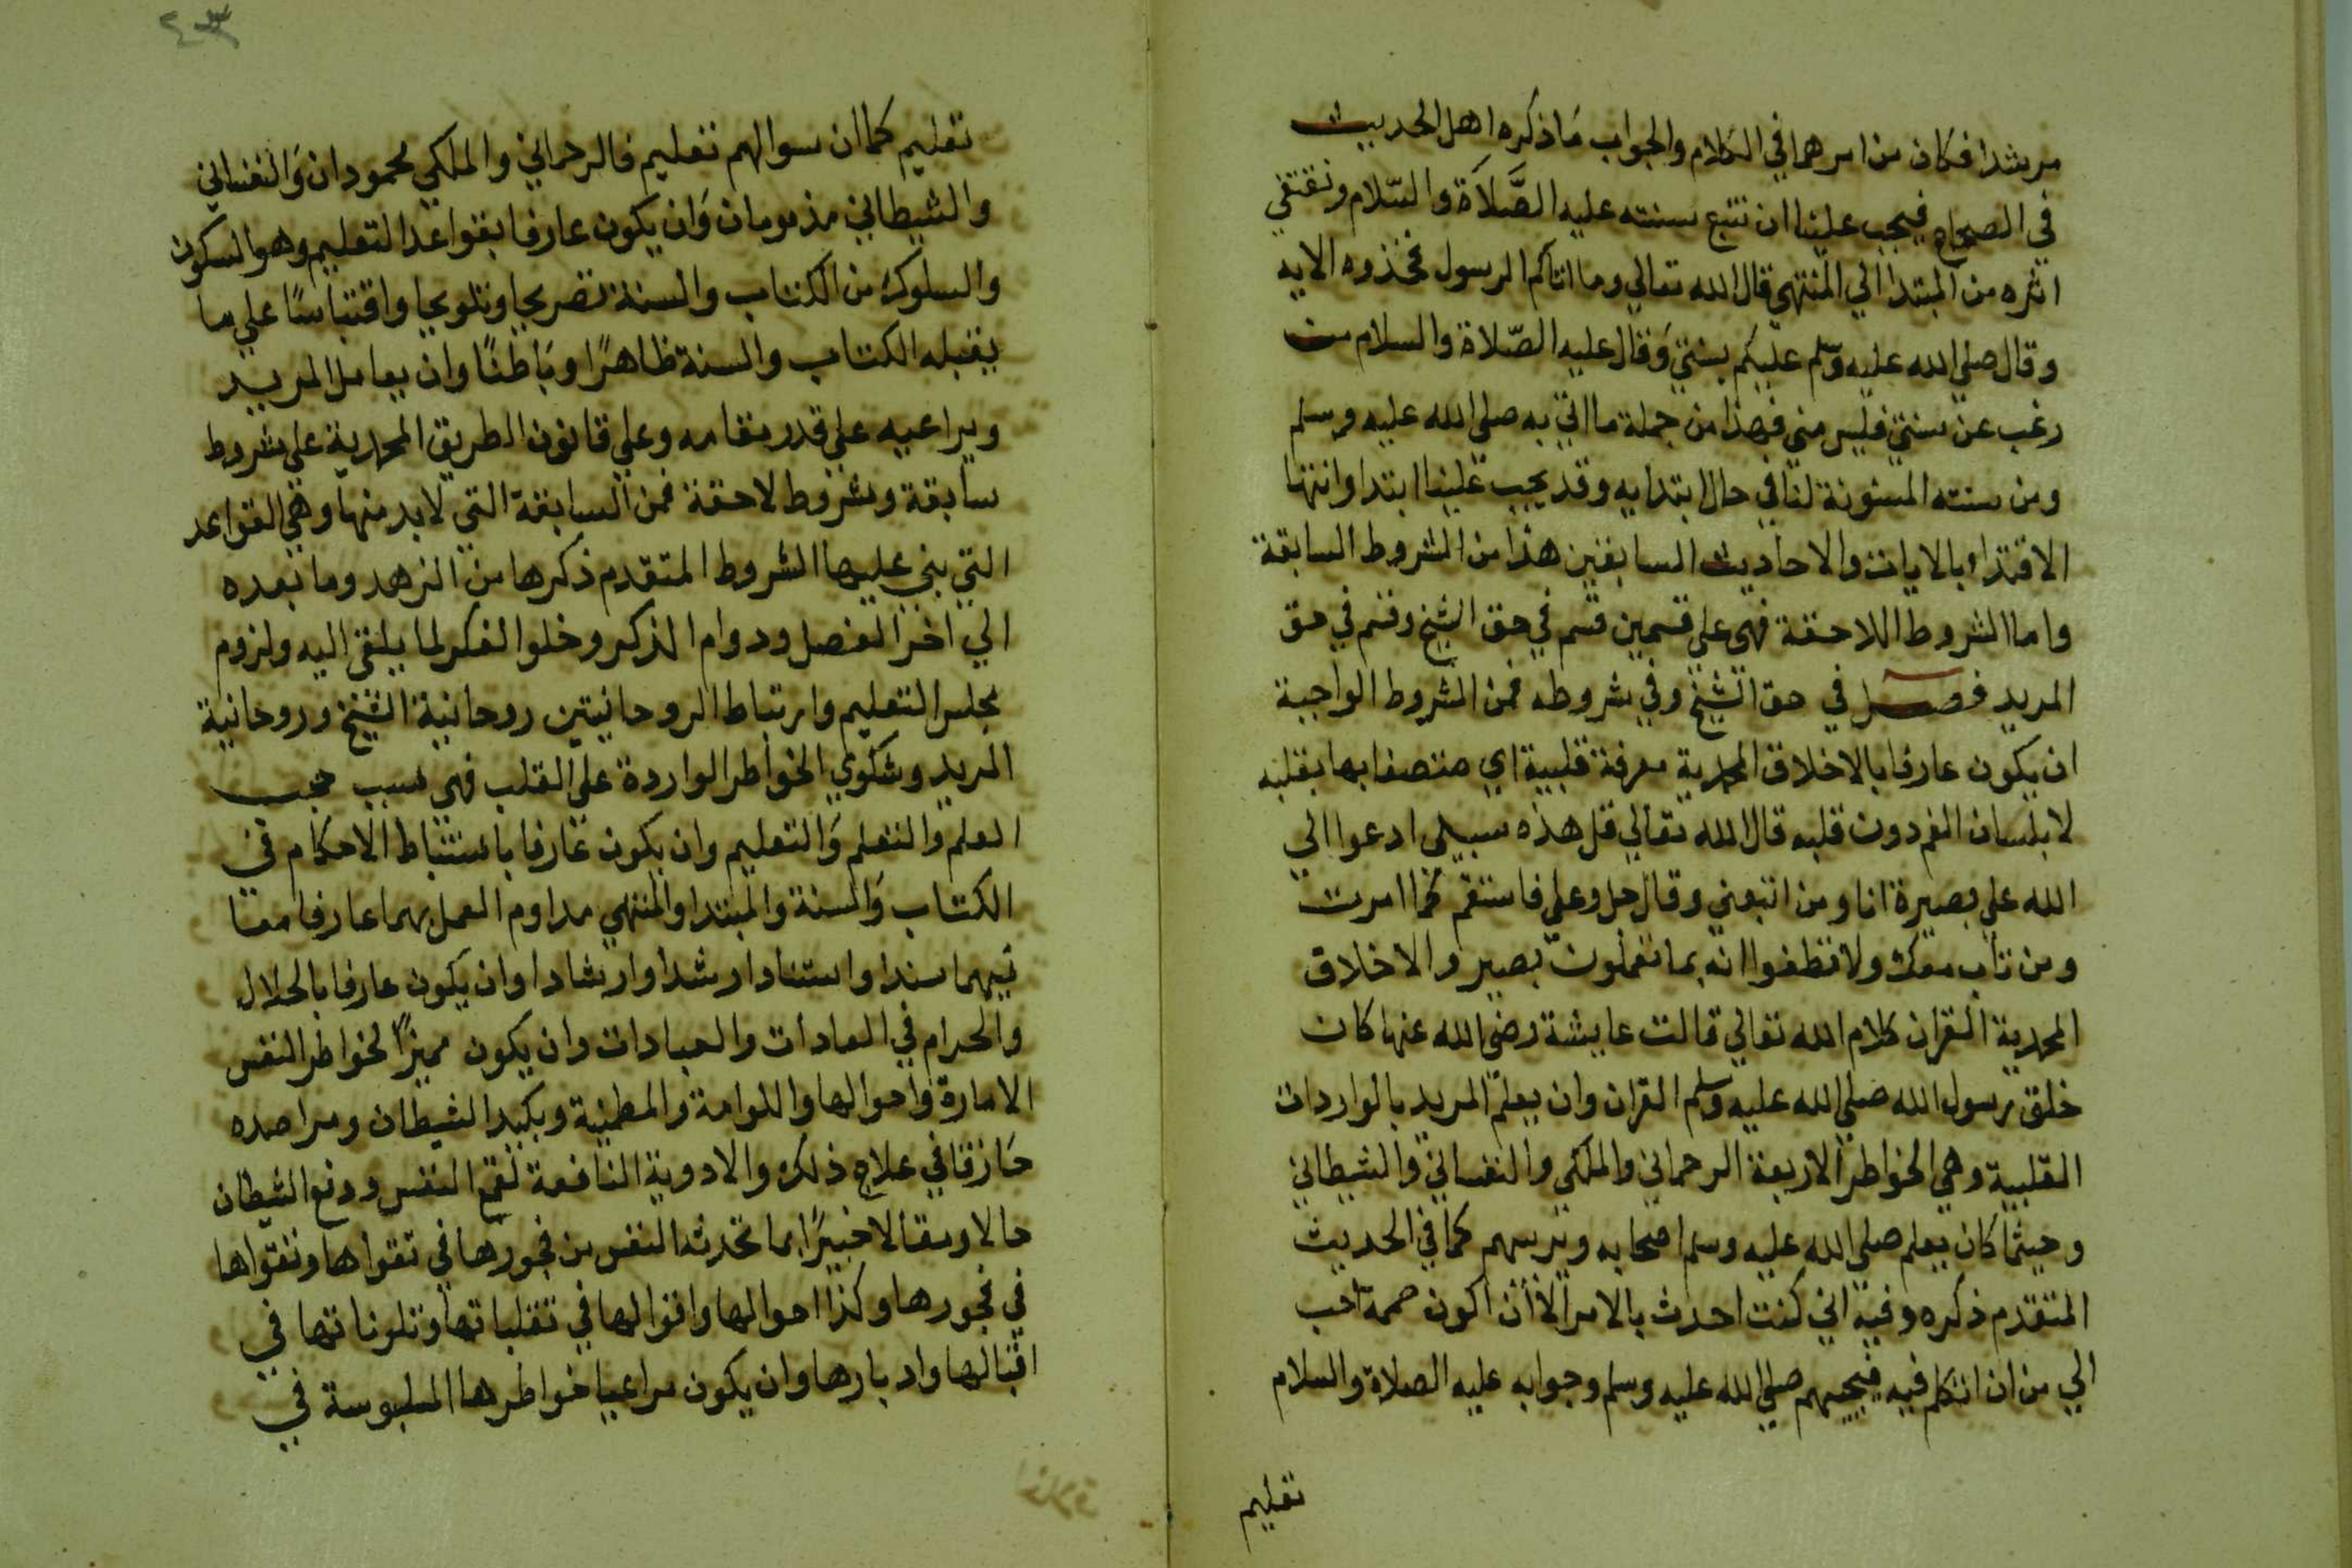 مرشدا فكان من امرهما في الكلام والجواب مَا ذكره اهل الحديث
في الصحاح فيجب علينا ان نتبع سنته عليه الصَّلَاة والسّلام ونقتفي
اثره من المبتدا الي المنتهي قال الله تعالي وما اتاكم الرسول فخذوه الايه
وقال صلي الله عليه وسلم عليكم بسنتي وَقال عليه الصّلاة والسلام من
رغب عن سنتي فليس مني فهذا من جملة ما اتي به صلي الله عليه وسلم
ومن سنته المسنونة لنا في حال ابتدايه وقد يجب علينا ابتدا وانتها
الاقتدا بالايات والاحاديث السابقين هذا من الشروط السابقة
واما الشروط اللاحقة فهي علي قسمين قسم في حق الشيخ وقسم في حق
المريد فصل في حق الشيخ وفي شروطه فمن الشروط الواجبة
ان يكون عارفا بالاخلاق المحمدية معرفة قلبية اي متصفا بها بقلبه
لا بلسان الفم دون قلبه قال الله تعالي قل هذه سبيلي ادعوا الي
الله علي بصيرة انا ومن اتبعني وقال جل وعلي فاستقم كما امرت
ومن تاب معك ولا تطغوا انه بما تعملون بصير والاخلاق
المحمدية القران كلام الله تعالي قالت عايشة رضي الله عنها كان
خلق رسول الله صلي الله عليه وسلم القران وان يعلم المريد بالواردات
القلبية وهي الخواطر الاربعة الرحماني والملكي والنفساني والشيطاني
وحيثما كان يعلم صلي الله عليه وسلم اصحابه ويربيهم كما في الحديث
المتقدم ذكره وفيه اني كنت احدث بالامر لاأن اكون حممة احب
الي من ان اتكلم فيه فيجيبهم صلي الله عليه وسلم وجوابه عليه الصلاة والسلام
تعليم
٢٤٣
تعليم كما ان سوالهم تعليم فالرحماني والملكي محمودان وَالنفساني
والشيطاني مذمومان وَان يكون عارفا بقواعد التعليم وهو السكون
والسلوك من الكتاب والسنة تصريحا وتلويحا واقتباسًا علي ما
يقبله الكتاب والسنة ظاهرًا وبَاطنًا وان يعامل المريد
ويراعيه علي قدر مقامه وعلي قانون الطريق المحمدية علي شروط
سابقة وشروط لاحقة فمن السابقة التي لابد منها وهي القواعد
التي بني عليها الشروط المتقدم ذكرها من الزهد وما بعده
الي اخر الفصل ودوام الذكر وخلوا الفكر لما يلقي اليه ولزوم
مجلس التعليم وارتباط الروحانيتين روحانية الشيخ وروحانية
المريد وشكوي الخواطر الواردة علي القلب فهي سبب حجب
العلم والتعلم وَالتعليم وان يكون عارفا باستنباط الاحكام في
الكتاب وَالسنة والمبتدا والمنتهي مداوم العمل بهما عارفا معنا
نيهما سندا واستنادا رشدا وارشادا وان يكون عارفا بالحلال
والحرام في العادات والعبادات وان يكون مميزًا لخواطر النفس
الامارة واحوالها واللوامة والمطمنية وبكيد الشيطان ومراصده
حَازقا في علاج ذلك والادوية النافعة لقمع النفس ودفع الشيطان
حالا ومقالا خبيرًا بما تحدث النفس من فجورها في تقواها وتقواها
في فجورها وكذا احوالها واقوالها في تقلباتها وتلوناتها في
اقبالها وادبارها وان يكون مراعيا خواطرها الملبوسة في